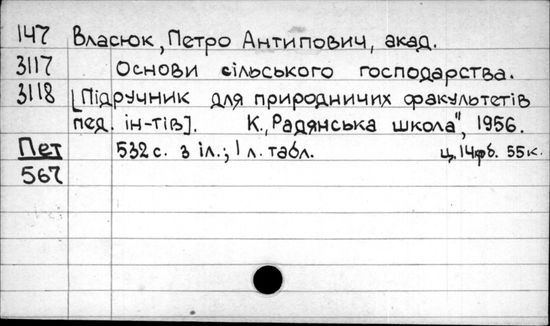 147 Власюк, Петро Антипович, акад.
3117 Основи сільського господарства.
3118 [Підручник для природничих факультетів
пед. ін-тів]. К., „Радянська школа", 1956.
Пет 532 с. з іл.; 1 л. табл. ц. 14рб. 55к.
567